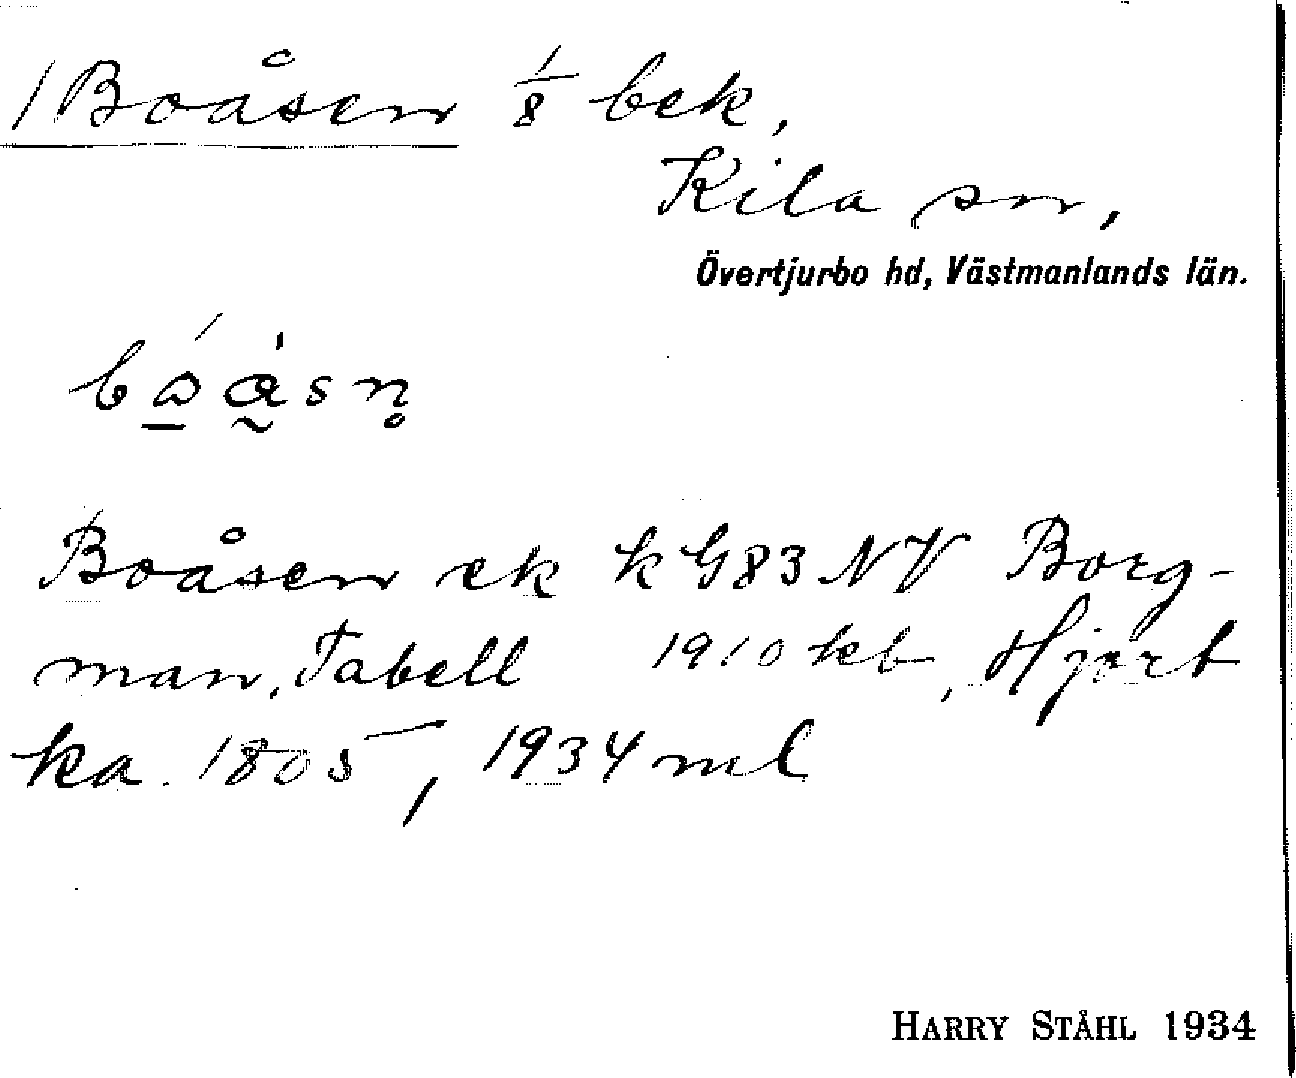 Boåsen 1/8 bek,
Kila sn,
Övertjurbo hd, Västmanlands län.
Boåsen ek k G83 NV Borg-
man, Tabell 1910 kb, Hjort
ka. 1805, 1934 ml
HARRY STÅHL 1934